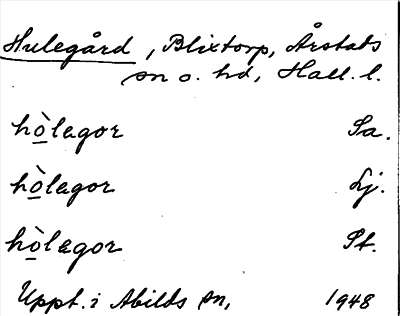 Hulegård, Blixtorp, Årstads
sn o. hd, Hall. l.
hò̲legor Sa.
hò̲legor Lj.
hò̲legor St.
Uppt. i Abilds sn, 1948